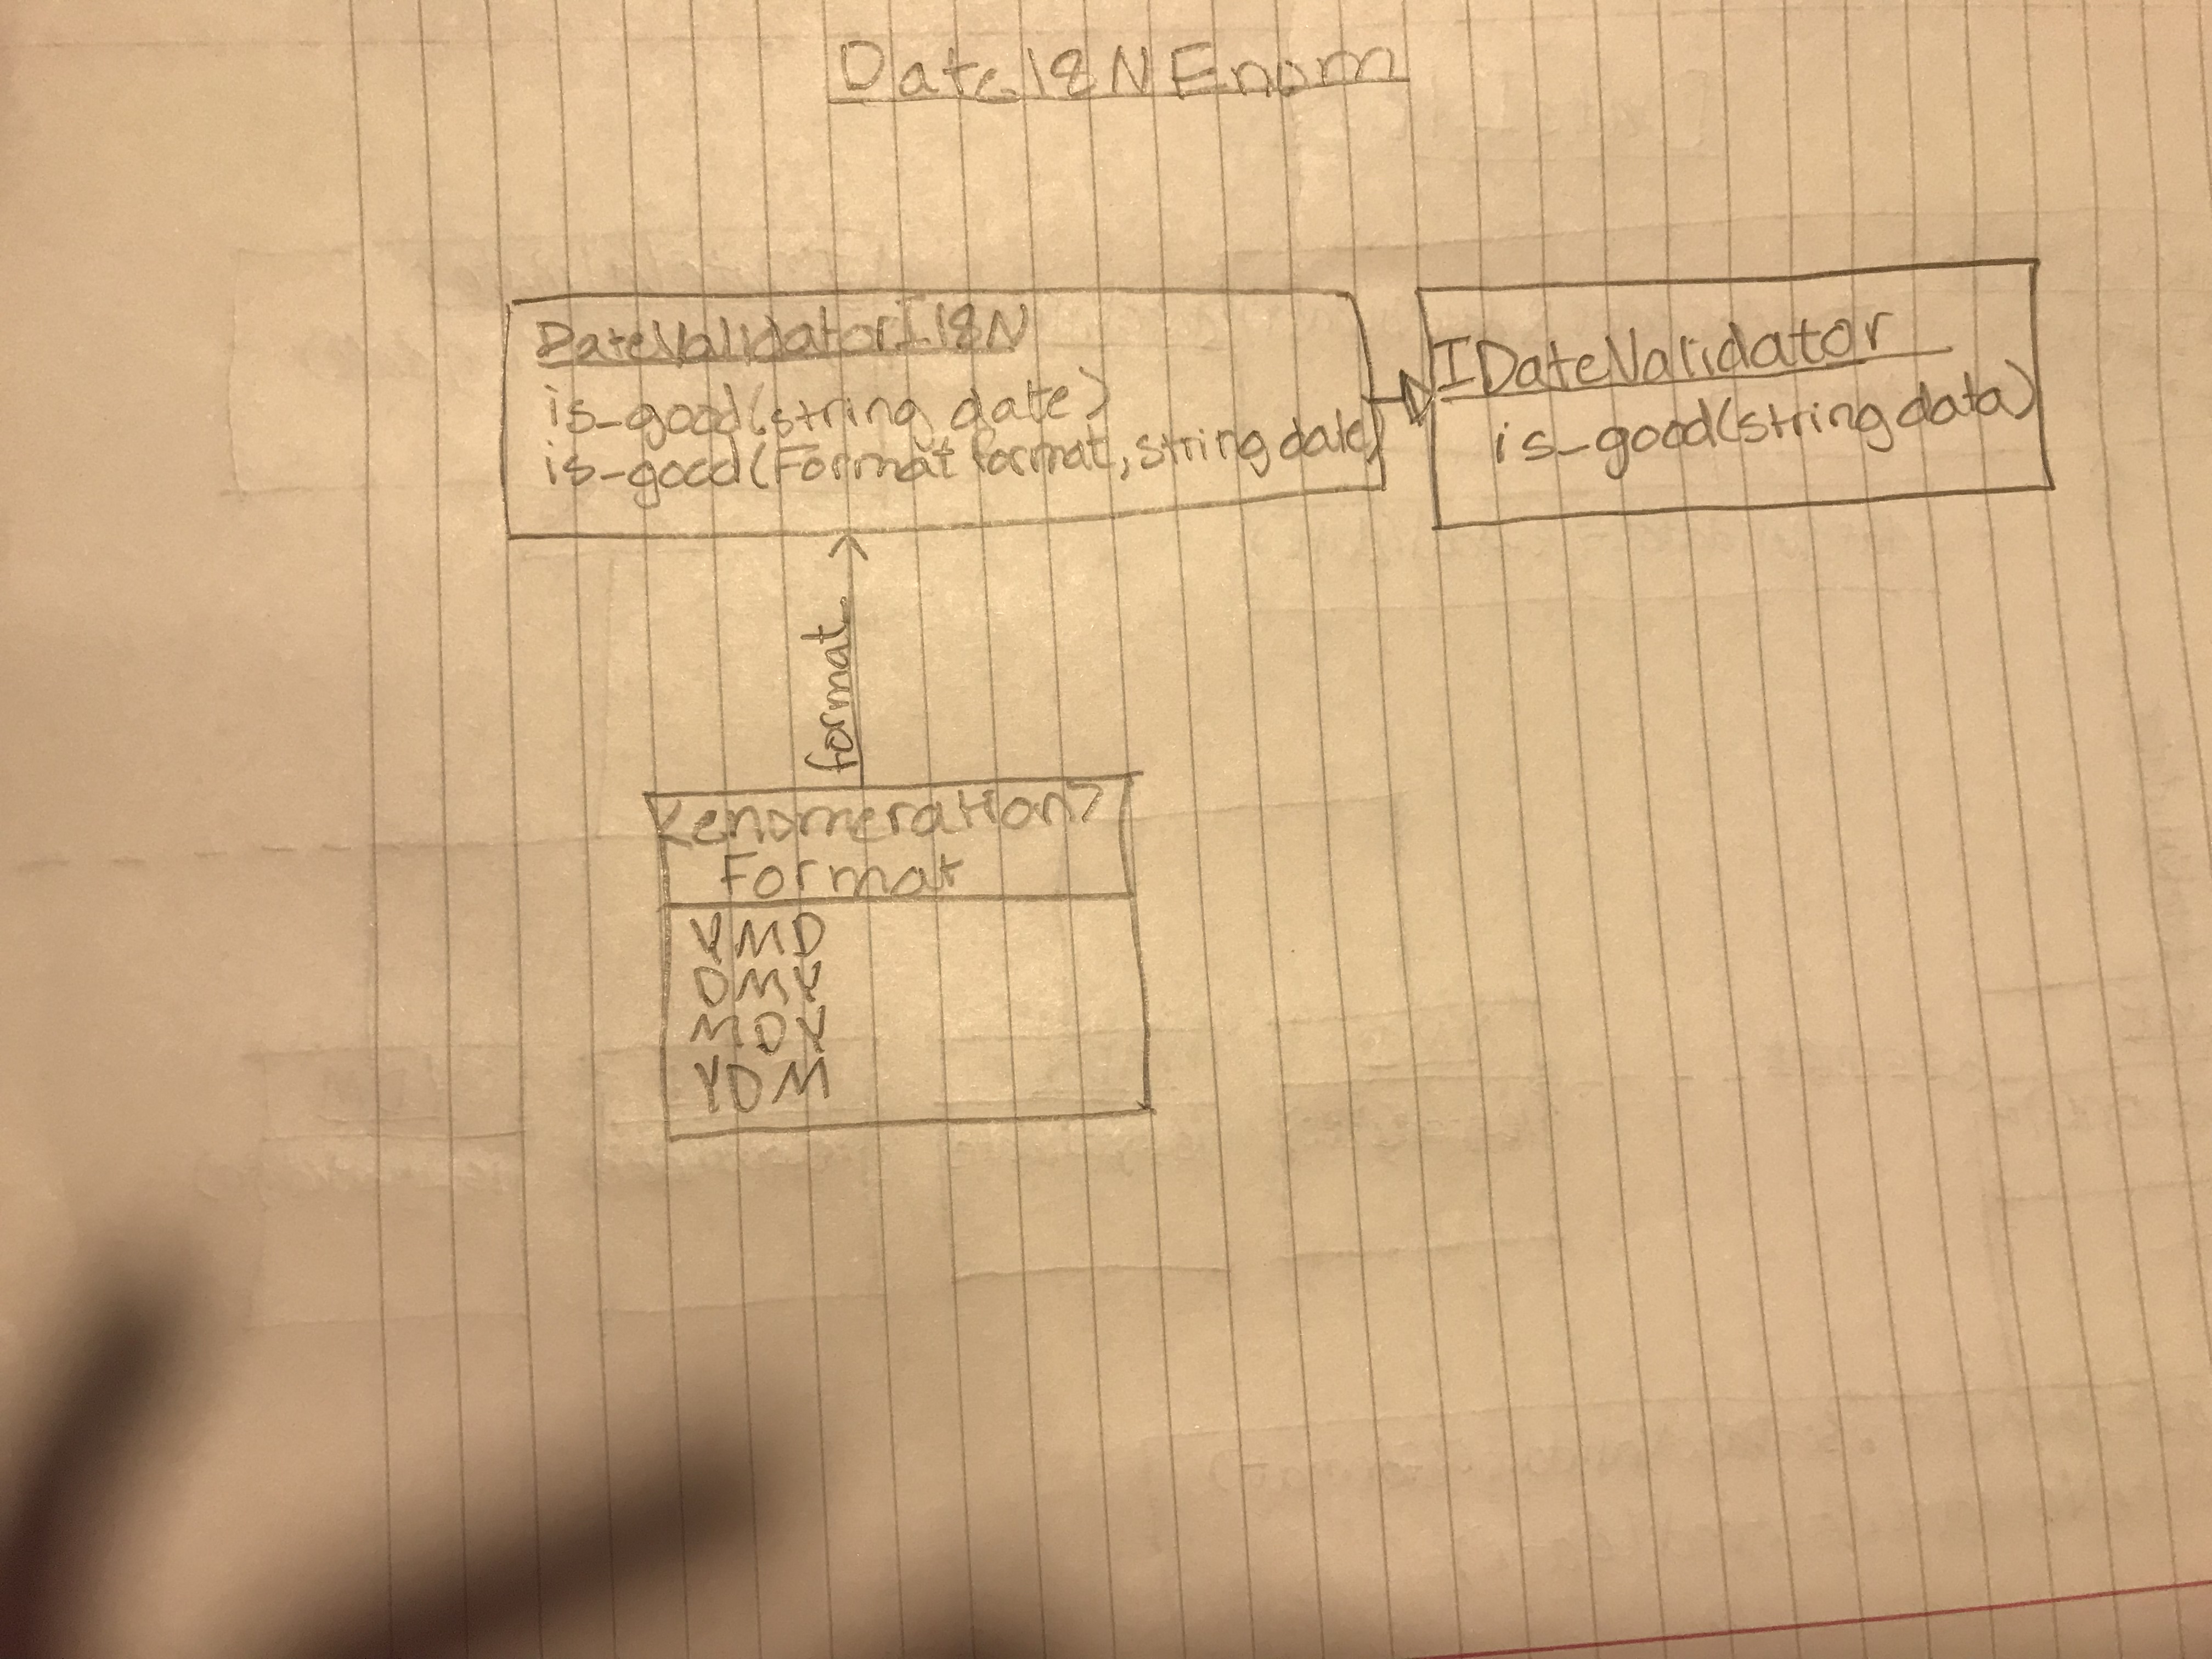 DateI18NEnum
DateValidatorI18N
is_good(string date)
is_good(Format format, string date)
IDateValidator
is_good(string data)
format
<enumeration>
Format
YMD
DMY
MDY
YDM